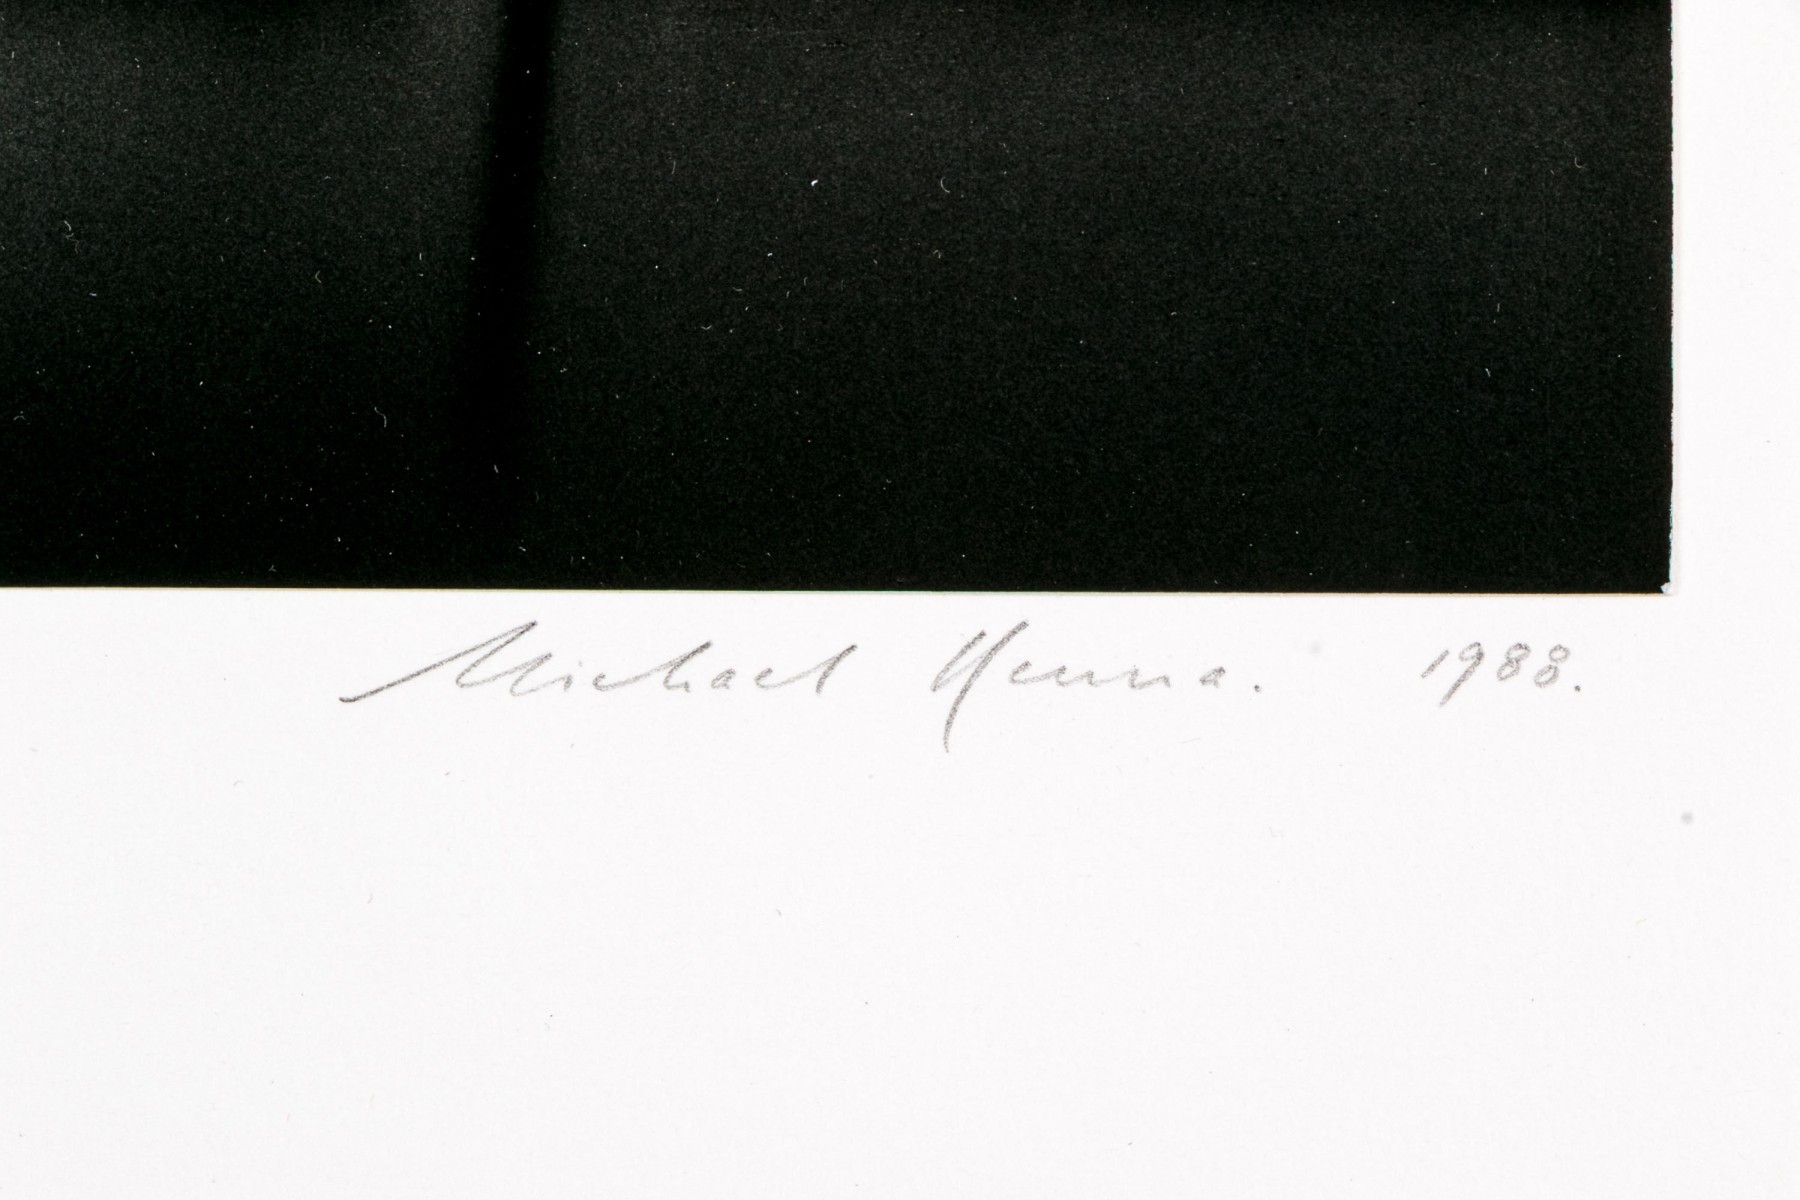 Michael Kenna. 1988.